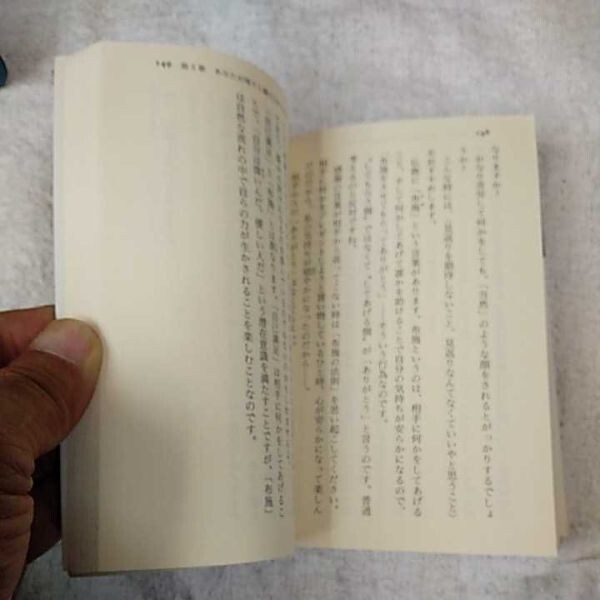 148
なりますか？
かなり苦労して何かをしても、「当然」のような顔をされるとがっかりするでしょ
うか？
こんな時には、〈見返りを期待しないこと、見返りなんてなくていいやと思うこと〉
をおすすめします。
仏教に「布施」という言葉があります。布施というのは、相手に何かをしてあげる
こと、そして何かしてあげて誰かを助けることで自分の気持ちが安らかになるので、
「布施をさせてもらってありがとう」――そういう行為なのです。
「してもらう側」ではなくて「してあげる側」が「ありがとう」と言うのです。普通
考えるのと反対ですね。
感謝の言葉が相手から返ってこない時は「布施の法則」を思い起こしてください。
心が安らかになって楽しん
149 第5章
「自己満足」と「布施」とは異なります。「自己満足」は相手に何かをしてあげるこ
とで、「自分は偉いんだ、優しい人だ」という潜在意識を満たすことですが、「布施」
は自然な流れの中で自らの力が生かされることを楽しむことなのです。